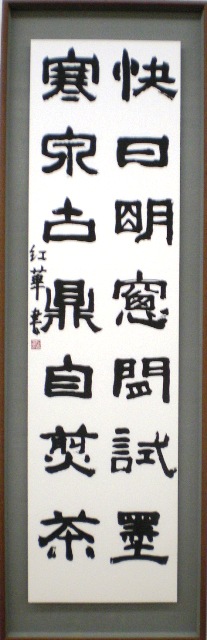 快日明窻閒試墨
寒泉古鼎自煎茶
紅華書